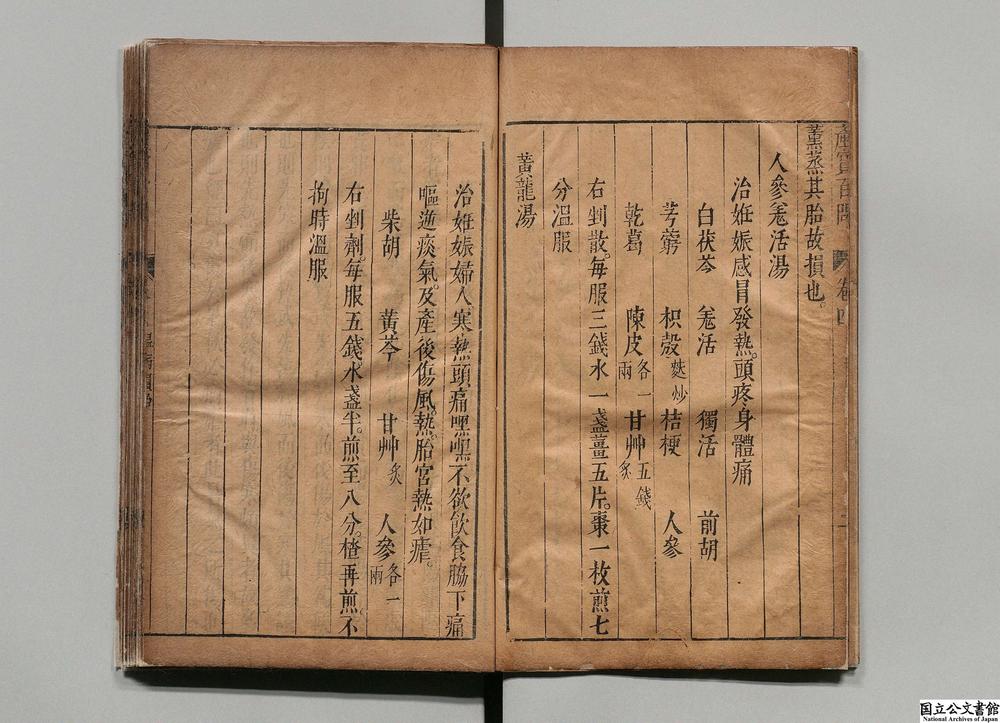 產寶百問 卷四
薰蒸其胎故損也。
人參羗活湯
治姙娠感冒發熱。頭疼身體痛
白茯苓 羗活 獨活 前胡
芎藭 枳殼麩炒 桔梗 人參
乾葛 陳皮各一兩 甘艸炙五錢
右剉散。每服三錢水一盞薑五片。棗一枚煎七
分溫服
黃龍湯
治姙娠婦人。寒熱頭痛嘿嘿不欲飲食脇下痛
嘔逆痰氣。及產後傷風。熱胎宮熱如瘧。
柴胡 黃芩 甘艸炙 人參各一兩
右剉劑。每服五錢。水盞半。煎至八分。楂再煎。不
拘時溫服
国立公文書館
National Archives of Japan